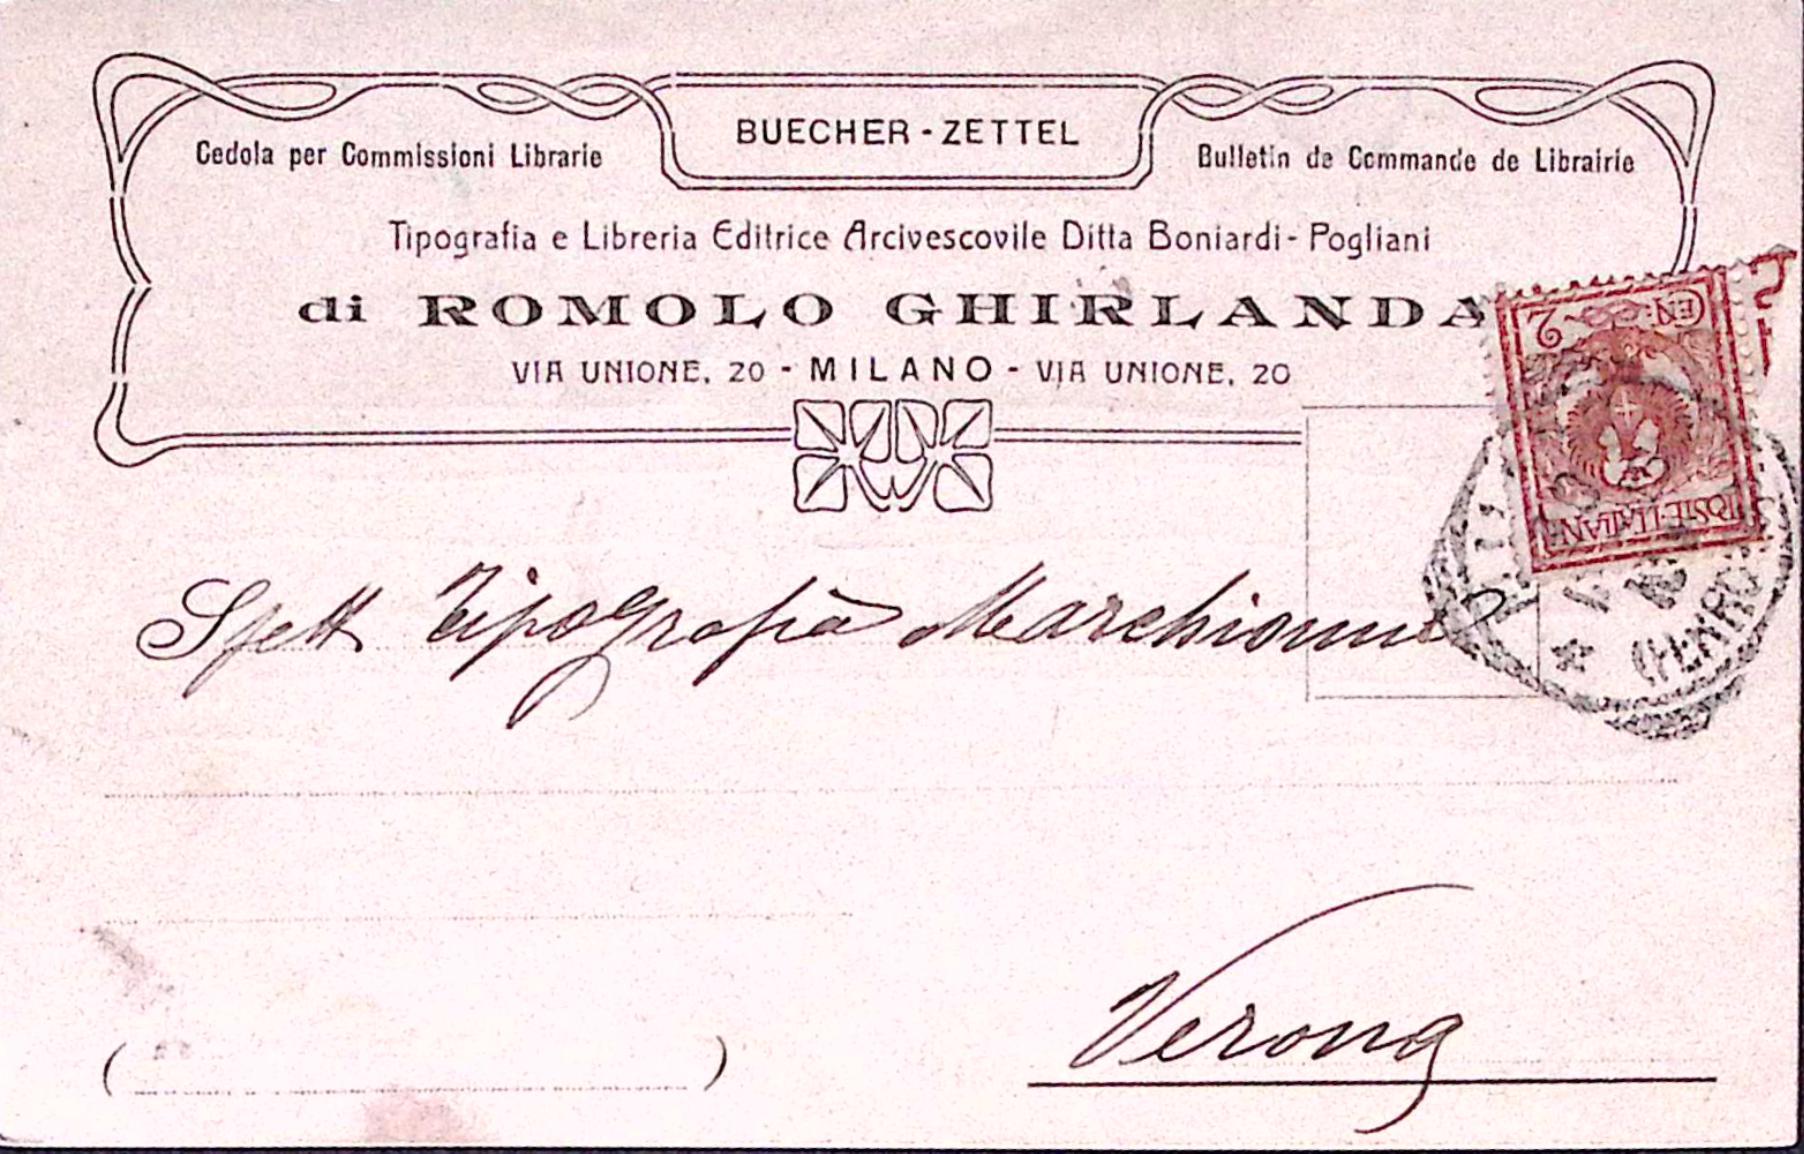 BUECHER - ZETTEL
Cedola per Commissioni Librarie
Bulletin de Commande de Librairie
Tipografia e Libreria Editrice Arcivescovile Ditta Boniardi - Pogliani
di ROMOLO GHIRLANDA
VIA UNIONE, 20 - MILANO - VIA UNIONE, 20
CEN. 2
POSTE ITALIANE
Spett Tipografia Marchionni
Verona